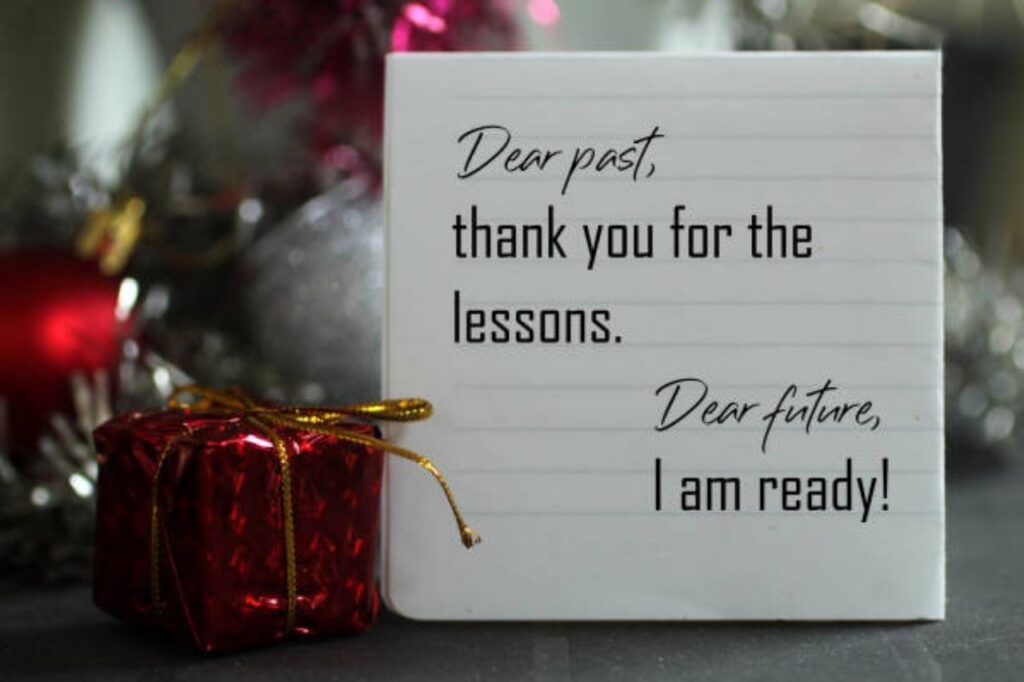 Dear past,
thank you for the
lessons.
Dear future,
I am ready!